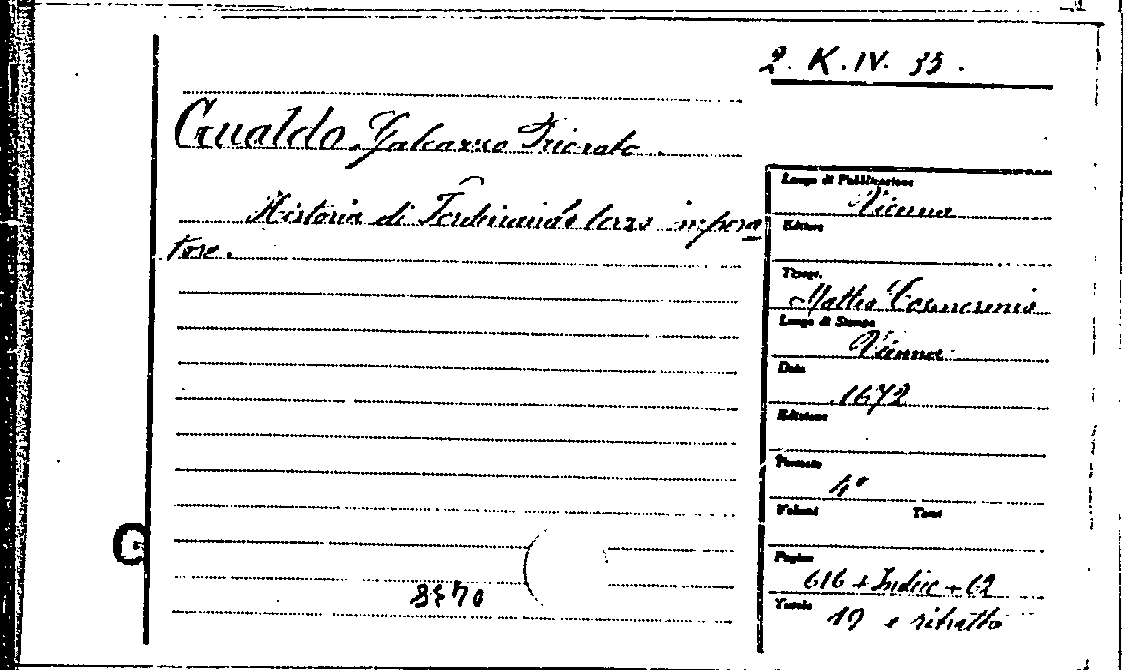 2. K. IV. 33.
Gualdo Galeazzo Priorato.
Historia di Ferdinando terzo impera
tore.
Luogo di Pubblicazione
Vienna
Editore
Tipogr.
Matteo Cosmerovio
Luogo di Stampa
Vienna
Data
1672
Edizione
Formato
4°
Volumi Tomi
Pagine
616 + Indice + 62
Tavole
19 e ritratto
G